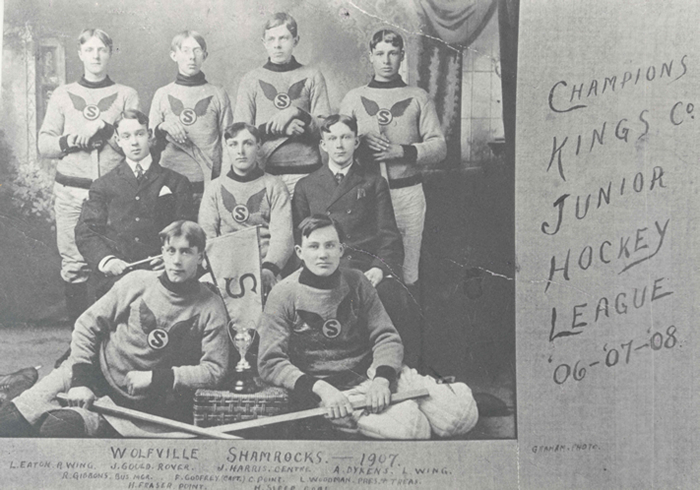 CHAMPIONS
KINGS Co.
JUNIOR
HOCKEY
LEAGUE
'06-'07-'08.
S
S
S
S
S
S
S
S
WOLFVILLE SHAMROCKS. — 1907.
L. EATON. R. WING. J. GOULD. ROVER. W. HARRIS. CENTRE. A. DYKENS. L. WING.
R. GIBBONS. BUS. MGR. F. GODFREY (CAPT.) C. POINT. L. WOODMAN. PRES. & TREAS.
H. FRASER. POINT. H.
GRAHAM. PHOTO.